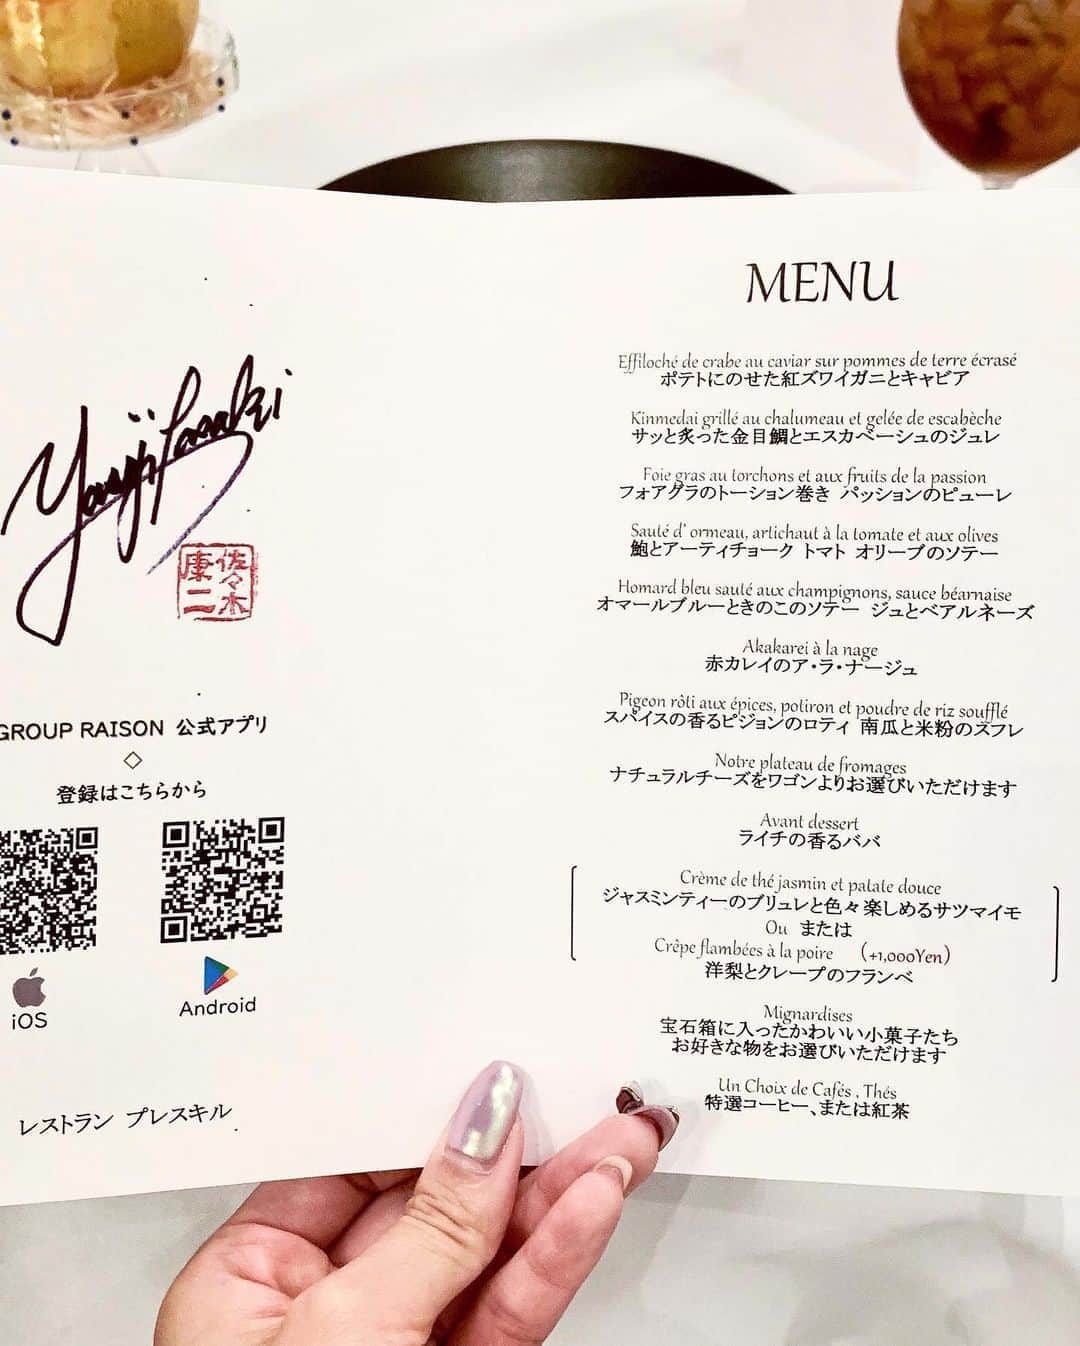 Yasuji Sasaki
佐々木
康二
GROUP RAISON 公式アプリ
登録はこちらから
iOS
Android
レストラン プレスキル
MENU
Effiloché de crabe au caviar sur pommes de terre écrasé
ポテトにのせた紅ズワイガニとキャビア
Kinmedai grillé au chalumeau et gelée de escabèche
サッと炙った金目鯛とエスカベーシュのジュレ
Foie gras au torchons et aux fruits de la passion
フォアグラのトーション巻き パッションのピューレ
Sauté d' ormeau, artichaut à la tomate et aux olives
鮑とアーティチョーク トマト オリーブのソテー
Homard bleu sauté aux champignons, sauce béarnaise
オマールブルーときのこのソテー ジュとベアルネーズ
Akakarei à la nage
赤カレイのア・ラ・ナージュ
Pigeon rôti aux épices, potiron et poudre de riz soufflé
スパイスの香るピジョンのロティ 南瓜と米粉のスフレ
Notre plateau de fromages
ナチュラルチーズをワゴンよりお選びいただけます
Avant dessert
ライチの香るババ
Crème de thé jasmin et patate douce
ジャスミンティーのブリュレと色々楽しめるサツマイモ
Ou または
Crêpe flambées à la poire (+1,000Yen)
洋梨とクレープのフランベ
Mignardises
宝石箱に入ったかわいい小菓子たち
お好きな物をお選びいただけます
Un Choix de Cafés , Thés
特選コーヒー、または紅茶